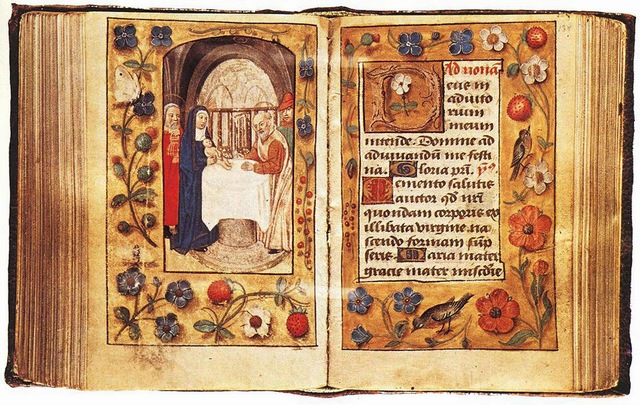 Ad nonā
Deus in
adiuto
rium
meum
intende. Domine ad
adiuuandū me festi
na. Gloria pr̄i.
Memento salutis
auctor qd nr̄i
quondam corporis ex
illibata virgine na
scendo formam sūp
seris. Maria mater
gracie mater miscdie